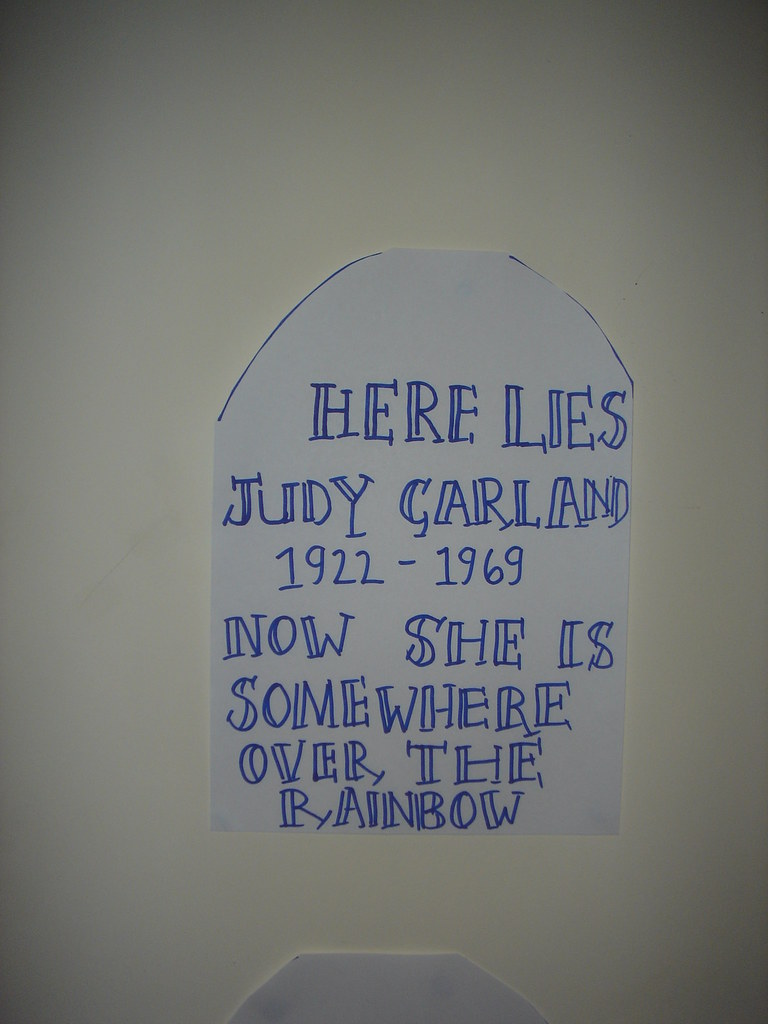 HERE LIES
JUDY GARLAND
1922 - 1969
NOW SHE IS
SOMEWHERE
OVER THE
RAINBOW